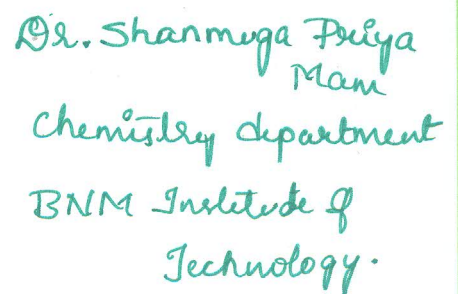 Dr. Shanmuga Priya
Mam
Chemistry department
BNM Institute of
Technology.